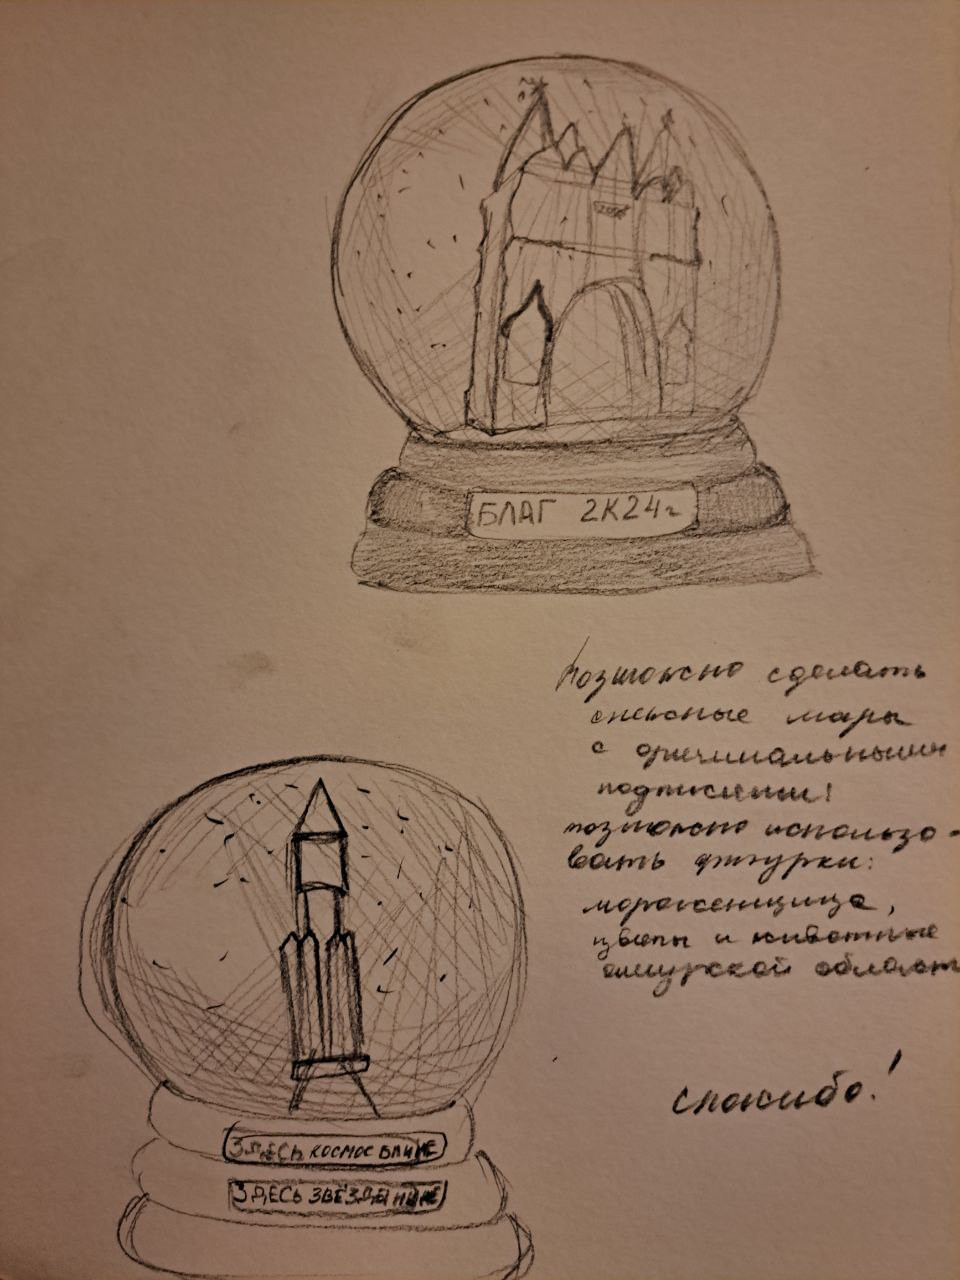 БЛАГ 2К24г
Возможно сделать
снежные шары
с оригинальными
подписями!
возможно использо-
вать фигурки:
мороженщица,
цветы и животные
амурской области
спасибо!
ЗДЕСЬ КОСМОС БЛИЖЕ
ЗДЕСЬ ЗВЁЗДЫ НИЖЕ